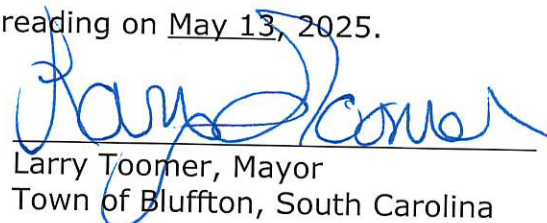 reading on May 13, 2025.
Larry Toomer
Larry Toomer, Mayor
Town of Bluffton, South Carolina